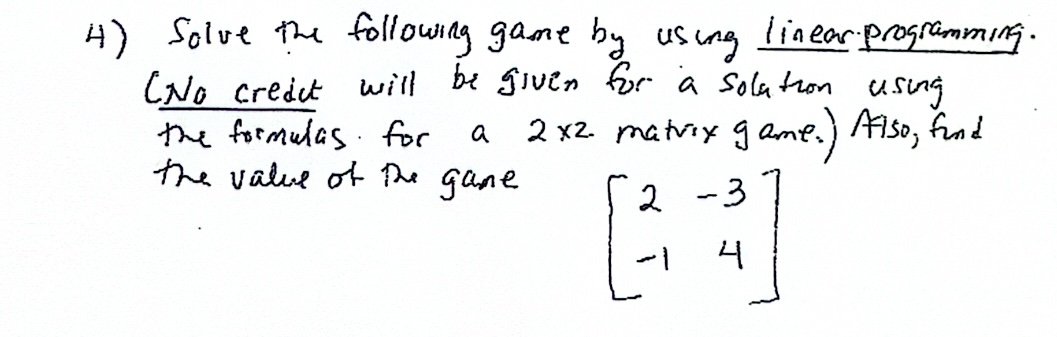 4) Solve the following game by using linear programming.
(No credit will be given for a solution using
the formulas for a 2x2 matrix game.) Also, find
the value of the game
2 -3
-1 4